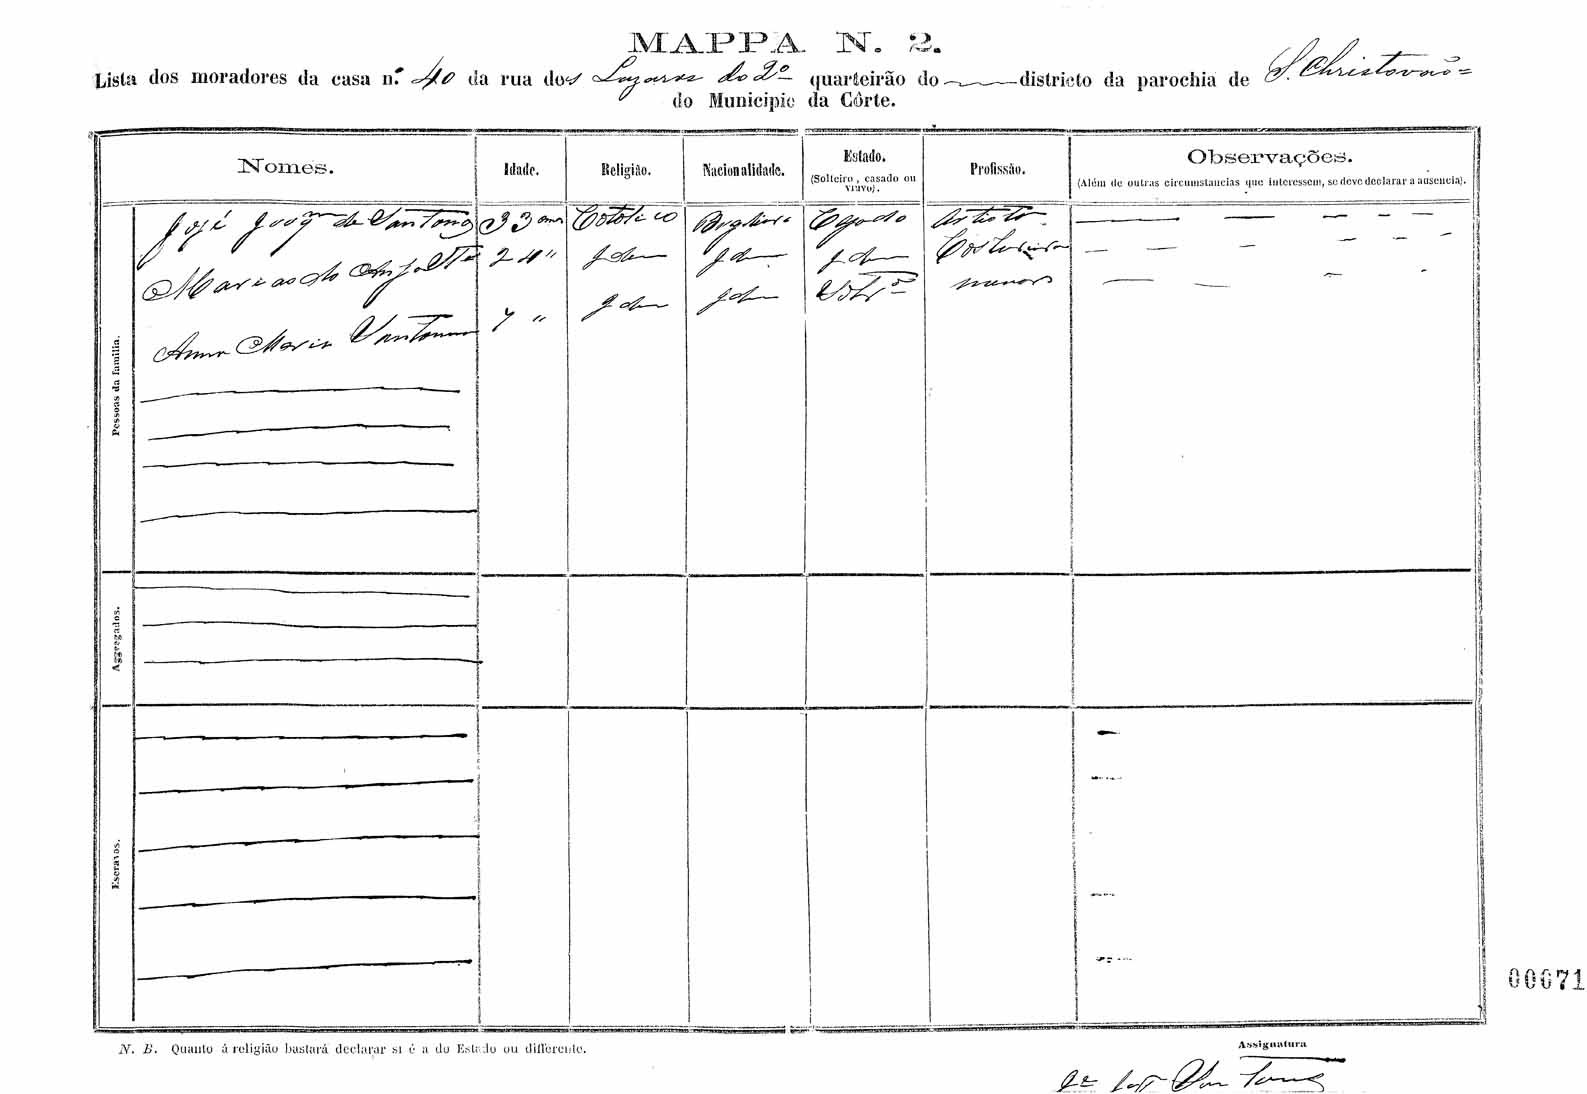 MAPPA N. 2.
Lista dos moradores da casa n.º 40 da rua dos Lazaros do 2º quarteirão do districto da parochia de S. Christovão
do Municipio da Côrte.
Nomes. Idade. Religião. Nacionalidade. Estado. (Solteiro, casado ou viuvo). Profissão. Observações. (Além de outras circumstancias que interessem, se deve declarar a ausencia).
Pessoas da familia.
José Joaqm de 33 annos Catolico Artista
Maria 24 " Idem Idem Idem Costureira
Anna Maria 7 " Idem Idem Soltrª menor
Aggregados.
Escravos.
00071
N. B. Quanto á religião bastará declarar si é a do Estado ou differente.
Assignatura